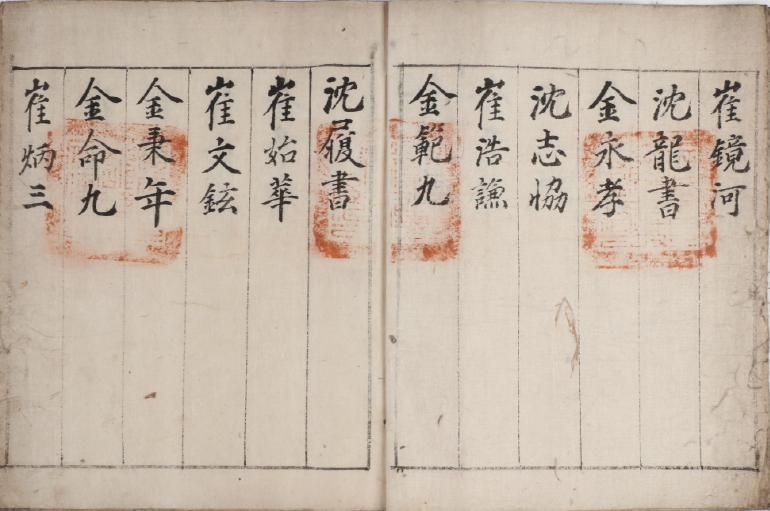 崔鏡河
沈龍書
金永孝
沈志恊
崔浩謙
金範九
沈履書
崔始華
崔文鉉
金秉年
金命九
崔炳三